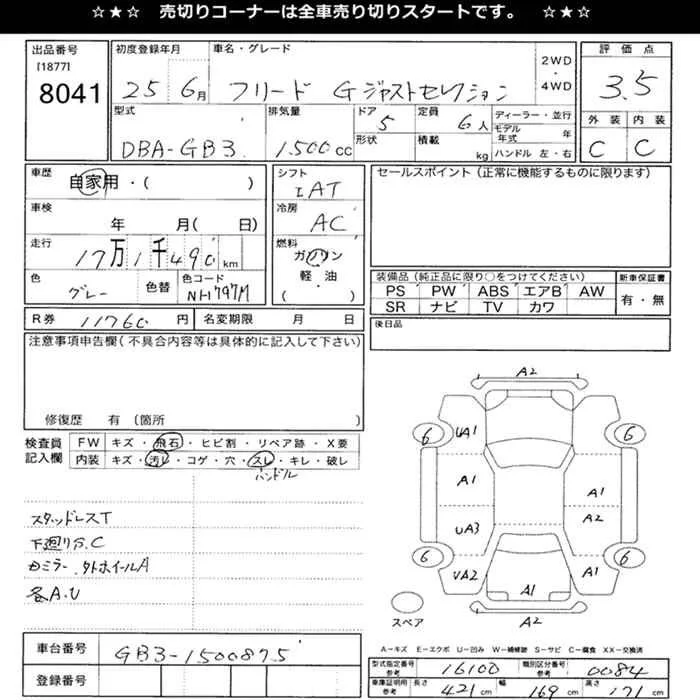 ☆★☆ 売切りコーナーは全車売り切りスタートです。 ☆★☆
出品番号 初度登録年月 車名・グレード 2WD ・ 4WD 評価点
[1877]
8041 25 6月 フリード Gジャストセレクション 3.5
型式 排気量 ドア 5 定員 6人 ディーラー・並行 外装 内装
DBA-GB3 1500cc 形状 積載 kg モデル年式 年 C C
ハンドル 左・右
車歴 自家用・( ) シフト IAT セールスポイント(正常に機能するものに限ります)
車検 年 月(日) 冷房 AC
走行 17万1千490km 燃料 ガソリン
軽・油
( )
色 グレー 色替 色コード NH797M
装備品(純正品に限り○をつけてください) 新車保証書
PS PW ABS エアB AW 有・無
SR ナビ TV カワ
R券 11760円 名変期限 月 日 後日品
注意事項申告欄(不具合内容等は具体的に記入して下さい)
修復歴 有(箇所 )
検査員記入欄 FW キズ・飛石・ヒビ割・リペア跡・X要
内装 キズ・汚レ・コゲ・穴・スレ・キレ・破レ
ハンドル
スタッドレスT
下廻り分.C
ミラー.外ホイールA
各A.U
A2
6 UA1 6
A1 A1
UA3 A2
6 UA2 A1 A1 6
スペア A2
A-キズ E-エクボ U-凹み W-補修跡 S-サビ C-腐食 XX-交換済
車台番号 GB3-1500875 型式指定番号 参考 16100 類別区分番号 参考 0084
登録番号 車庫証明用 参考 長さ 421cm 幅 169cm 高さ 171cm